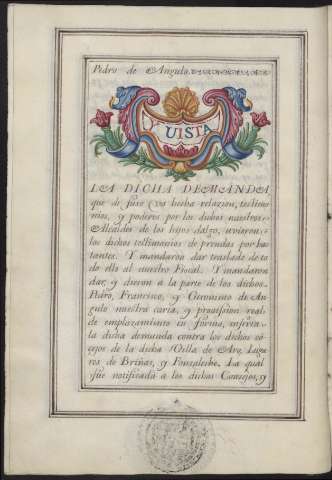 Pedro de Angulo.
Y VISTA
LA DICHA DEMANDA
que de suso va hecha relazion, testimo
nios, y poderes por los dichos nuestros
Alcaldes de los hijos dalgo, uvieron
los dichos testimonios de prendas por bas
tantes. Y mandaron dar traslado de to
do ello al nuestro Fiscal. Y mandaron
dar, y dieron a la parte de los dichos
Pedro, Francisco, y Geronimo de An
gulo nuestra carta, y provision real
de emplazamiento en forma, inserta
la dicha demanda contra los dichos co
cejos de la dicha Villa de Aro, Luga
res de Briñas, y Fonzaleche. La qual
fue notificada a los dichos Consejos, y